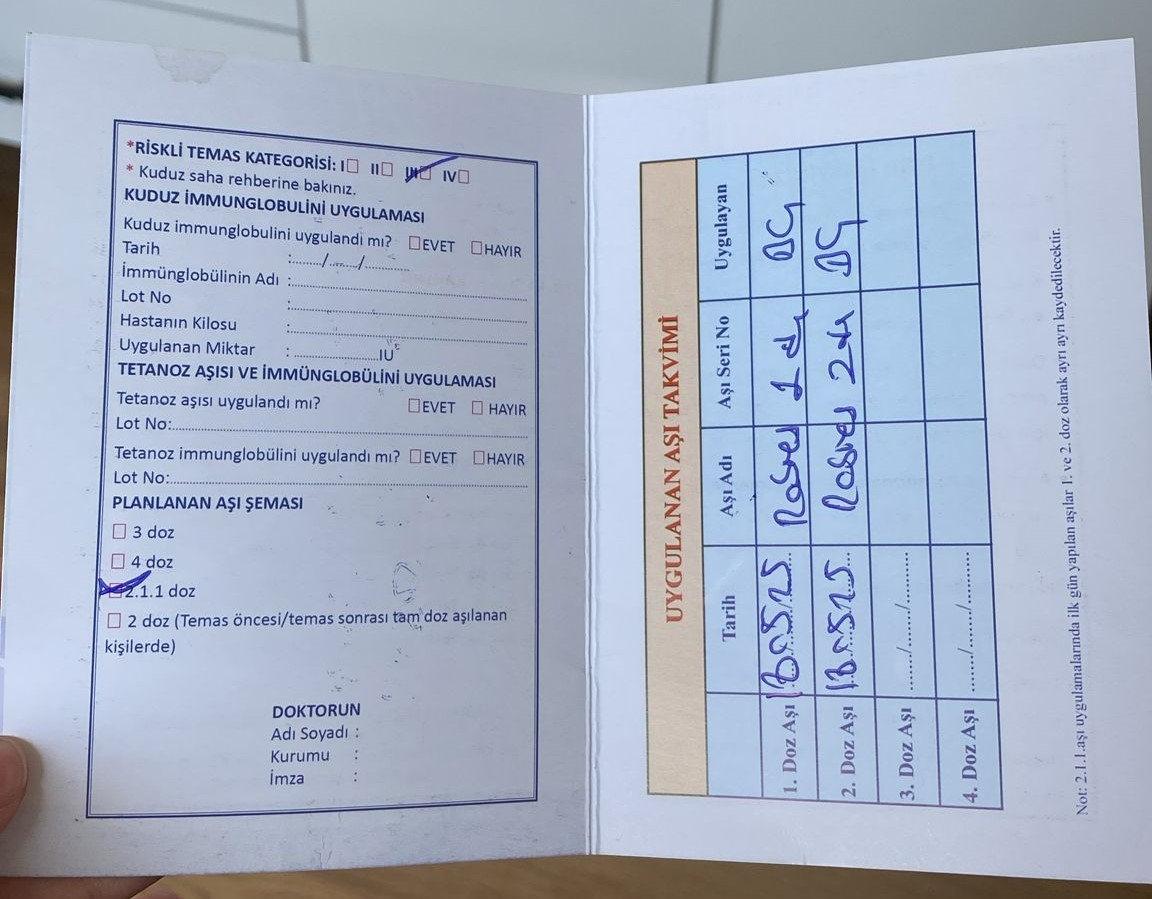 *RİSKLİ TEMAS KATEGORİSİ: I☐ II☐ III☐ IV☐
* Kuduz saha rehberine bakınız.
KUDUZ İMMUNGLOBULİNİ UYGULAMASI
Kuduz immunglobulini uygulandi mı? ☐EVET ☐HAYIR
Tarih :......../......../............
İmmünglobülinin Adı :
Lot No :
Hastanın Kilosu :
Uygulanan Miktar : .....................IU
TETANOZ AŞISI VE İMMÜNGLOBÜLİNİ UYGULAMASI
Tetanoz aşısı uygulandı mı? ☐EVET ☐ HAYIR
Lot No:
Tetanoz immunglobülini uygulandı mı? ☐EVET ☐HAYIR
Lot No:
PLANLANAN AŞI ŞEMASI
☐ 3 doz
☐ 4 doz
☐ 2.1.1 doz
☐ 2 doz (Temas öncesi/temas sonrası tam doz aşılanan
kişilerde)
DOKTORUN
Adı Soyadı :
Kurumu :
İmza :
UYGULANAN AŞI TAKVİMİ
Tarih Aşı Adı Aşı Seri No Uygulayan
1. Doz Aşı
2. Doz Aşı
3. Doz Aşı ....../....../.........
4. Doz Aşı ....../....../.........
Not: 2.1.1.aşı uygulamalarında ilk gün yapılan aşılar 1. ve 2. doz olarak ayrı ayrı kaydedilecektir.